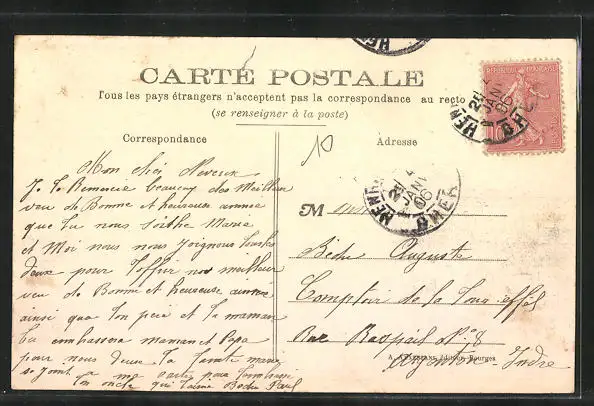 CARTE POSTALE
Tous les pays étrangers n'acceptent pas la correspondance au recto
(se renseigner à la poste)
Correspondance
Adresse
10
REPUBLIQUE FRANÇAISE
JANV
06
CHER
Mon cher Neveux
Je te Remercie beaucoup des Meilleu
veu de Bonne et heureuse année
que tu nous Marie
et Moi nous nous Joignons touts
deux pour t'offrir nos meilleur
veu de Bonne et heureuse année
ainsi que ton père et ta maman
tu embrassera maman et Papa
pour nous deux ta tante marie
se joint a me
ton oncle qui t'aime Bedu Paul
M
Bedu Auguste
Comptoir de la Tour effel
Rue Raspail N° 8
Argenton Indre
Bourges